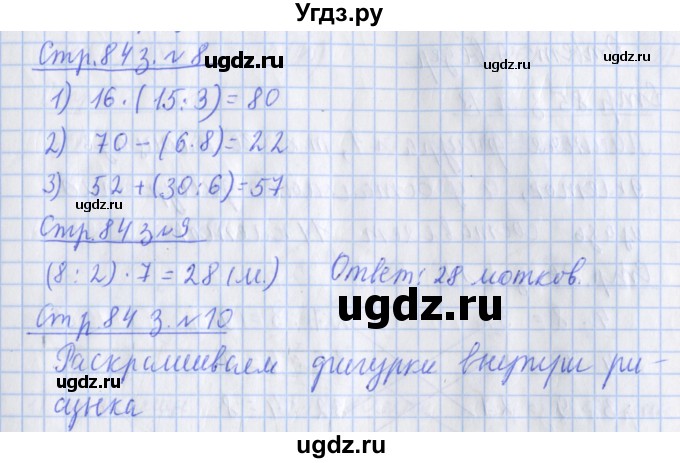 Угдз.ру
Стр. 84 з. №8
ugdz.ru
ugdz.ru
1) 16 · (15 : 3) = 80
2) 70 - (6 · 8) = 22
ugdz.ru
ugdz.ru
3) 52 + (30 : 6) = 57
Стр. 84 з №9
ugdz.ru
(8 : 2) · 7 = 28 (м.) Ответ: 28 мотков.
ugdz.ru
ugdz.ru
Стр 84 з. №10
Раскрашиваем фигурки внутри ри-
ugdz.ru
ugdz.ru
сунка
ugdz.ru